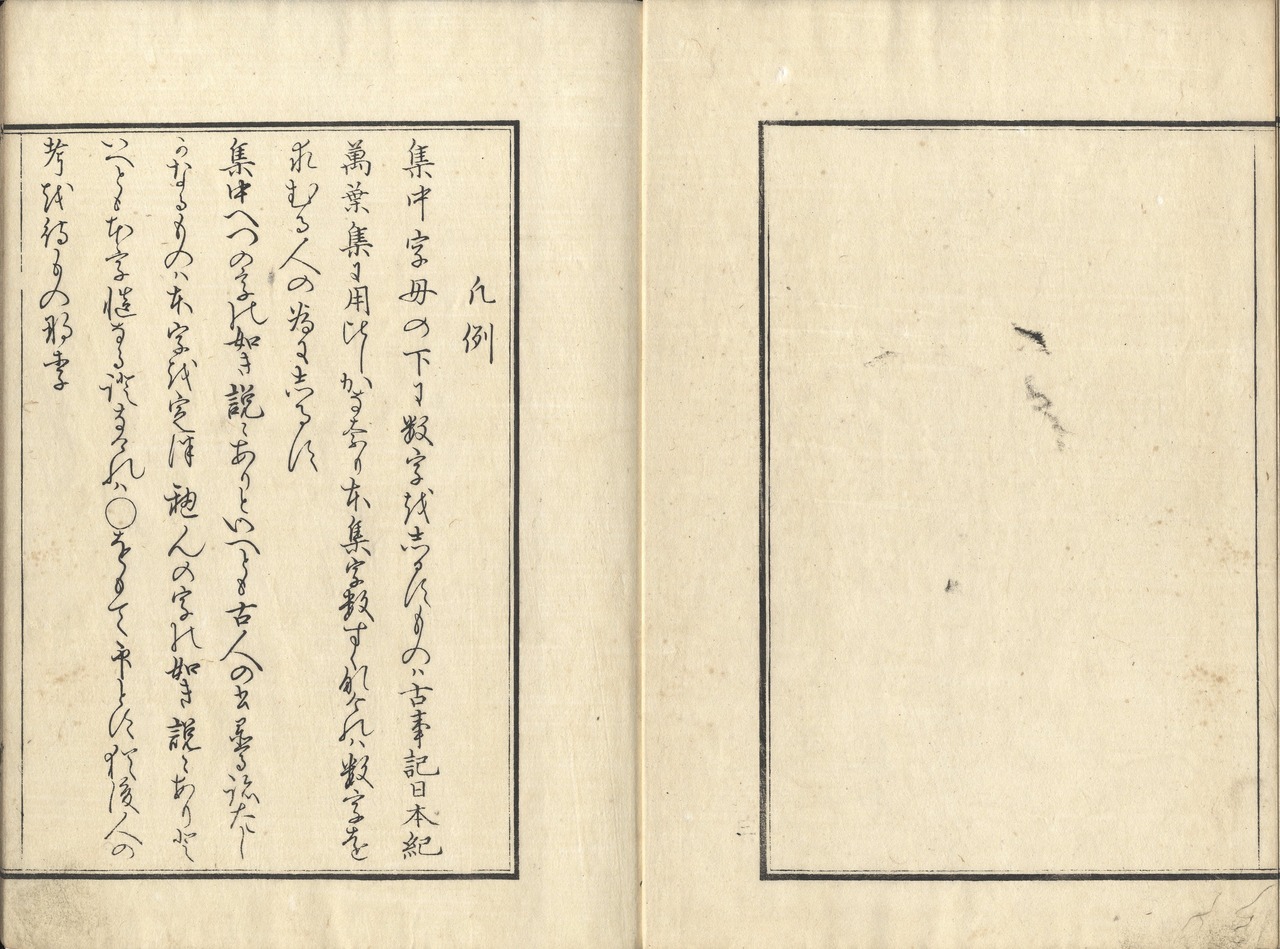 凡例
集中字母の下に数字をしるすものハ古事記日本紀
萬葉集に用ひしかななり本集字数すくなけれハ数字を
求むる人の為にしるす
集中へつの字の如き説〻ありといへとも古人の出所たし
かなるものハ本字を定つ ん の字の如き説〻ありと
いへとも本字慥なる證なけれハ〇をもて印とす猶後人の
考を待もの那李